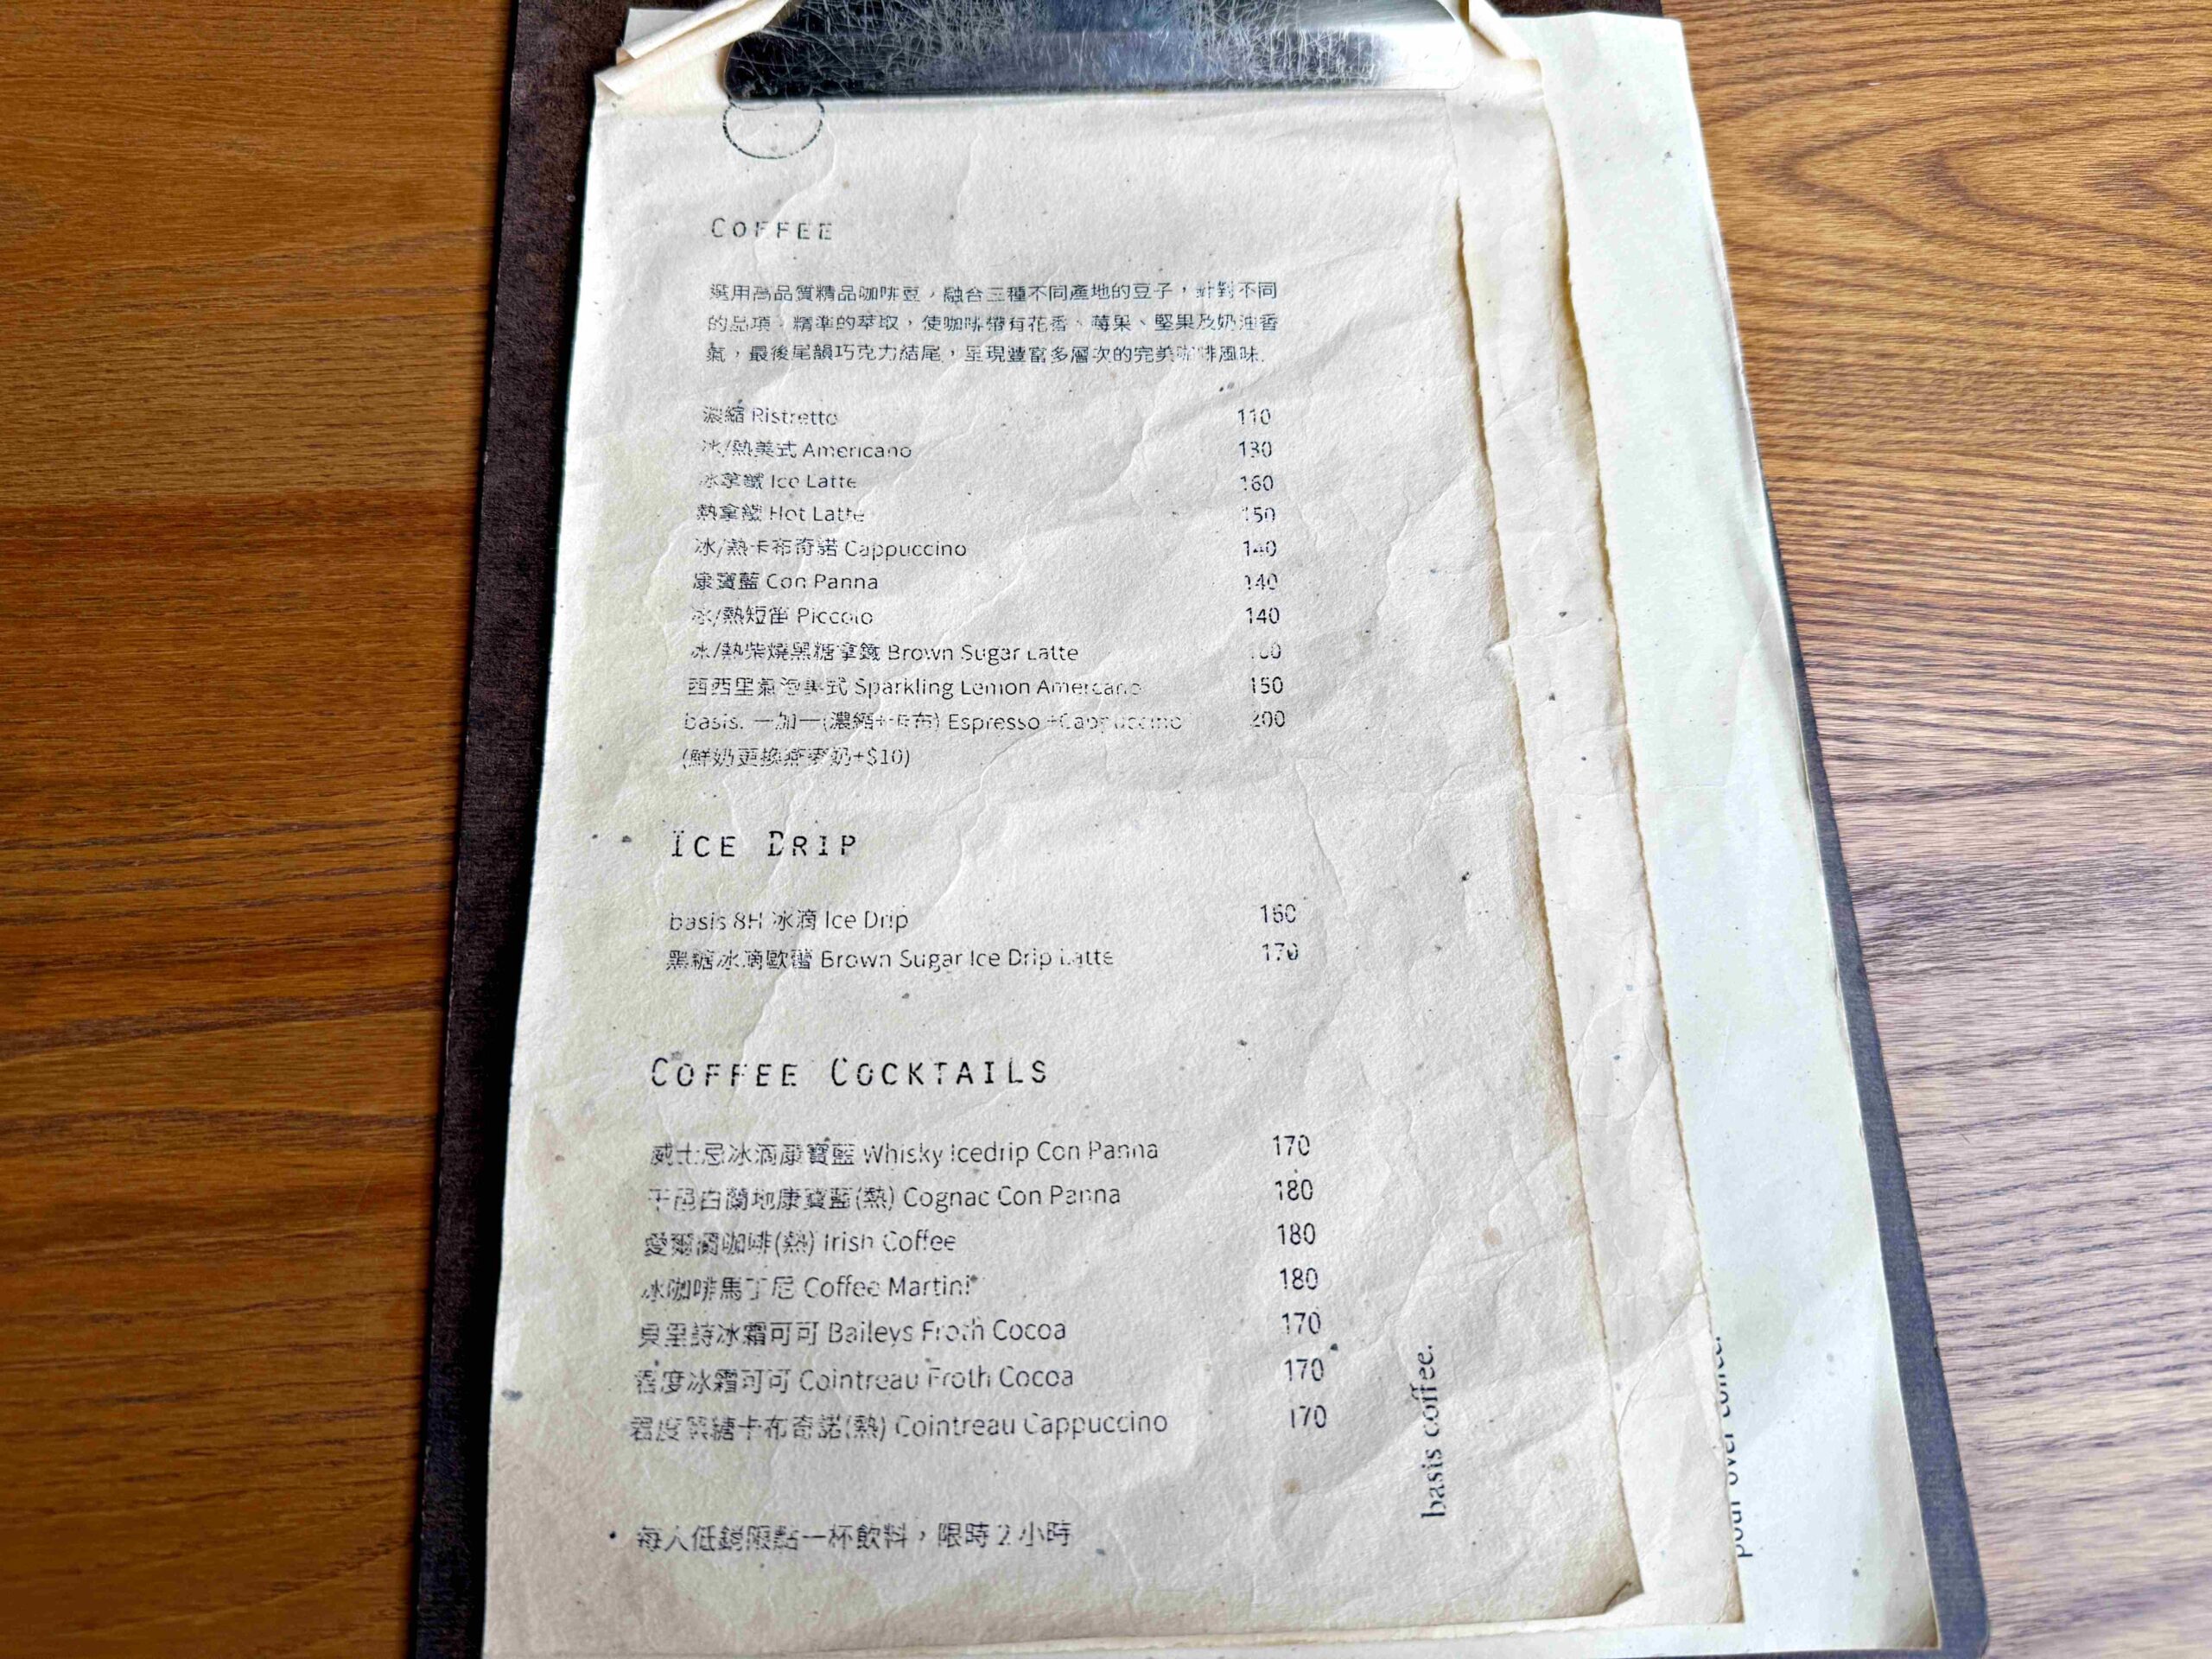 COFFEE
選用高品質精品咖啡豆，融合三種不同產地的豆子，針對不同
的品項，精準的萃取，使咖啡帶有花香、莓果、堅果及奶油香
氣，最後尾韻巧克力結尾，呈現豐富多層次的完美咖啡風味.
濃縮 Ristretto 110
冰/熱美式 Americano 130
冰拿鐵 Ice Latte 160
熱拿鐵 Hot Latte 150
冰/熱卡布奇諾 Cappuccino 140
康寶藍 Con Panna 140
冰/熱短笛 Piccolo 140
冰/熱柴燒黑糖拿鐵 Brown Sugar Latte
西西里氣泡美式 Sparkling Lemon Amercano 150
basis. 一加一(濃縮+卡布) Espresso +Cappuccino 200
(鮮奶更換燕麥奶+$10)
ICE DRIP
basis 8H 冰滴 Ice Drip 160
黑糖冰滴歐蕾 Brown Sugar Ice Drip Latte 170
COFFEE COCKTAILS
威士忌冰滴康寶藍 Whisky Icedrip Con Panna 170
干邑白蘭地康寶藍(熱) Cognac Con Panna 180
愛爾蘭咖啡(熱) Irish Coffee 180
冰咖啡馬丁尼 Coffee Martini 180
貝里詩冰霜可可 Baileys Froth Cocoa 170
君度冰霜可可 Cointreau Froth Cocoa 170
君度黑糖卡布奇諾(熱) Cointreau Cappuccino 170
• 每人低銷限點一杯飲料，限時 2 小時
basis coffee.
pour over coffee.